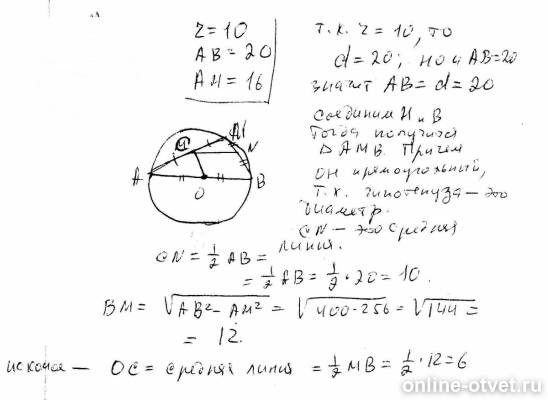 r = 10
AB = 20
AM = 16
т.к. r = 10, то
d = 20; но и AB = 20
значит AB = d = 20
Соединим M и B
Тогда получится
Δ AMB. Причем
он прямоугольный,
т.к. гипотенуза – это
диаметр.
CN – это средняя
линия.
A
C
M
N
O
B
CN = 1/2 AB =
= 1/2 AB = 1/2 · 20 = 10.
BM = √AB² – AM² = √400-256 = √144 =
= 12.
OC = средняя линия = 1/2 MB = 1/2 · 12 = 6
online-otvet.ru